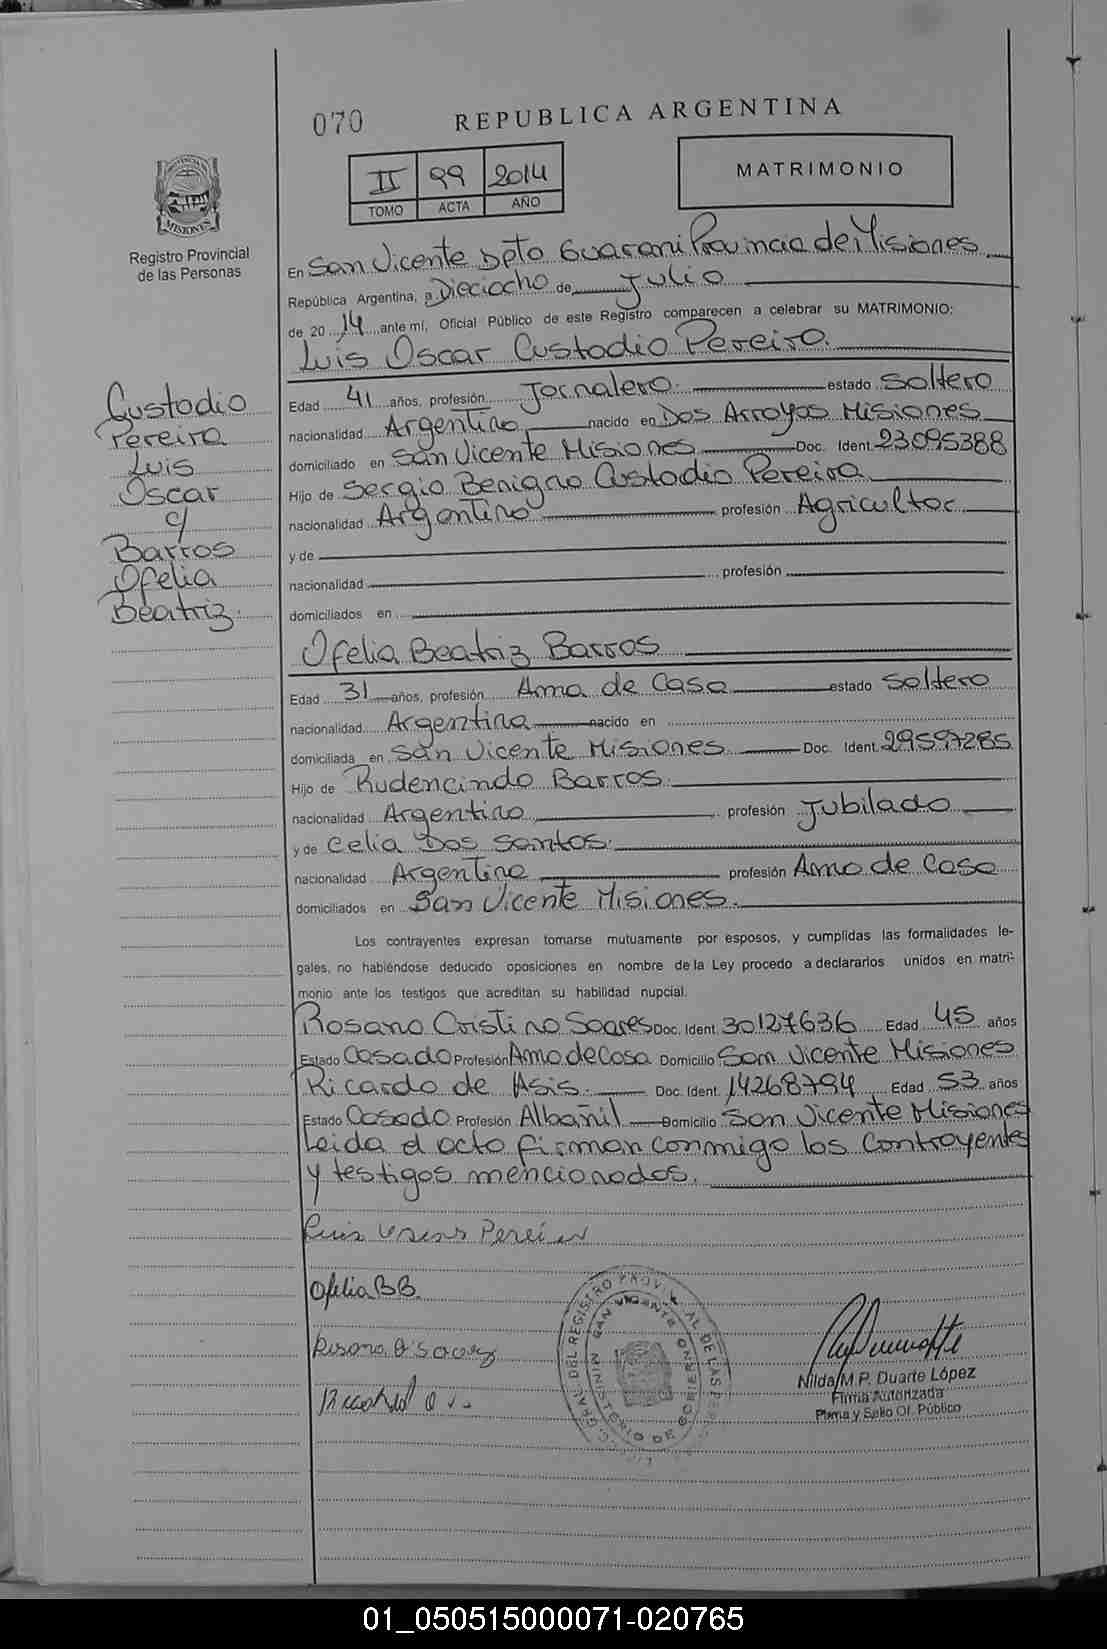 070
REPUBLICA ARGENTINA
II 99 2014
TOMO ACTA AÑO
MATRIMONIO
MISIONES
Registro Provincial
de las Personas
En San Vicente Dpto Guarani Provincia de Misiones
República Argentina, a Dieciocho de Julio
de 20 14 ante mí, Oficial Público de este Registro comparecen a celebrar su MATRIMONIO:
Luis Oscar Custodio Pereira.
Custodio
Pereira
Luis
Oscar
c/
Barros
Ofelia
Beatriz.
Edad 41 años, profesión Jornalero. estado Soltero
nacionalidad Argentino nacido en Dos Arroyos Misiones
domiciliado en San Vicente Misiones Doc. Ident. 23095388
Hijo de Sergio Benigno Custodio Pereira
nacionalidad Argentino profesión Agricultor
y de
nacionalidad profesión
domiciliados en
Ofelia Beatriz Barros
Edad 31 años, profesión Ama de Casa estado Soltero
nacionalidad Argentina nacido en
domiciliada en San Vicente Misiones Doc. Ident. 29597285
Hijo de Rudencindo Barros.
nacionalidad Argentino profesión Jubilado
y de Celia Dos Santos.
nacionalidad Argentina profesión Ama de Casa
domiciliados en San Vicente Misiones.
Los contrayentes expresan tomarse mutuamente por esposos, y cumplidas las formalidades le-
gales, no habiéndose deducido oposiciones en nombre de la Ley procedo a declararlos unidos en matri-
monio ante los testigos que acreditan su habilidad nupcial.
Rosana Cristina Soares Doc. Ident. 30127636 Edad 45 años
Estado Casado Profesión Ama de Casa Domicilio San Vicente Misiones
Ricardo de Asis. Doc. Ident. 14268794 Edad 53 años
Estado Casado Profesión Albañil Domicilio San Vicente Misiones
Leida el acta firman conmigo los Contrayentes
y testigos mencionados.
Luis Pereira
Ofelia B B.
Nilda M P. Duarte López
Firma Autorizada
Firma y Sello Of. Público
01_050515000071-020765